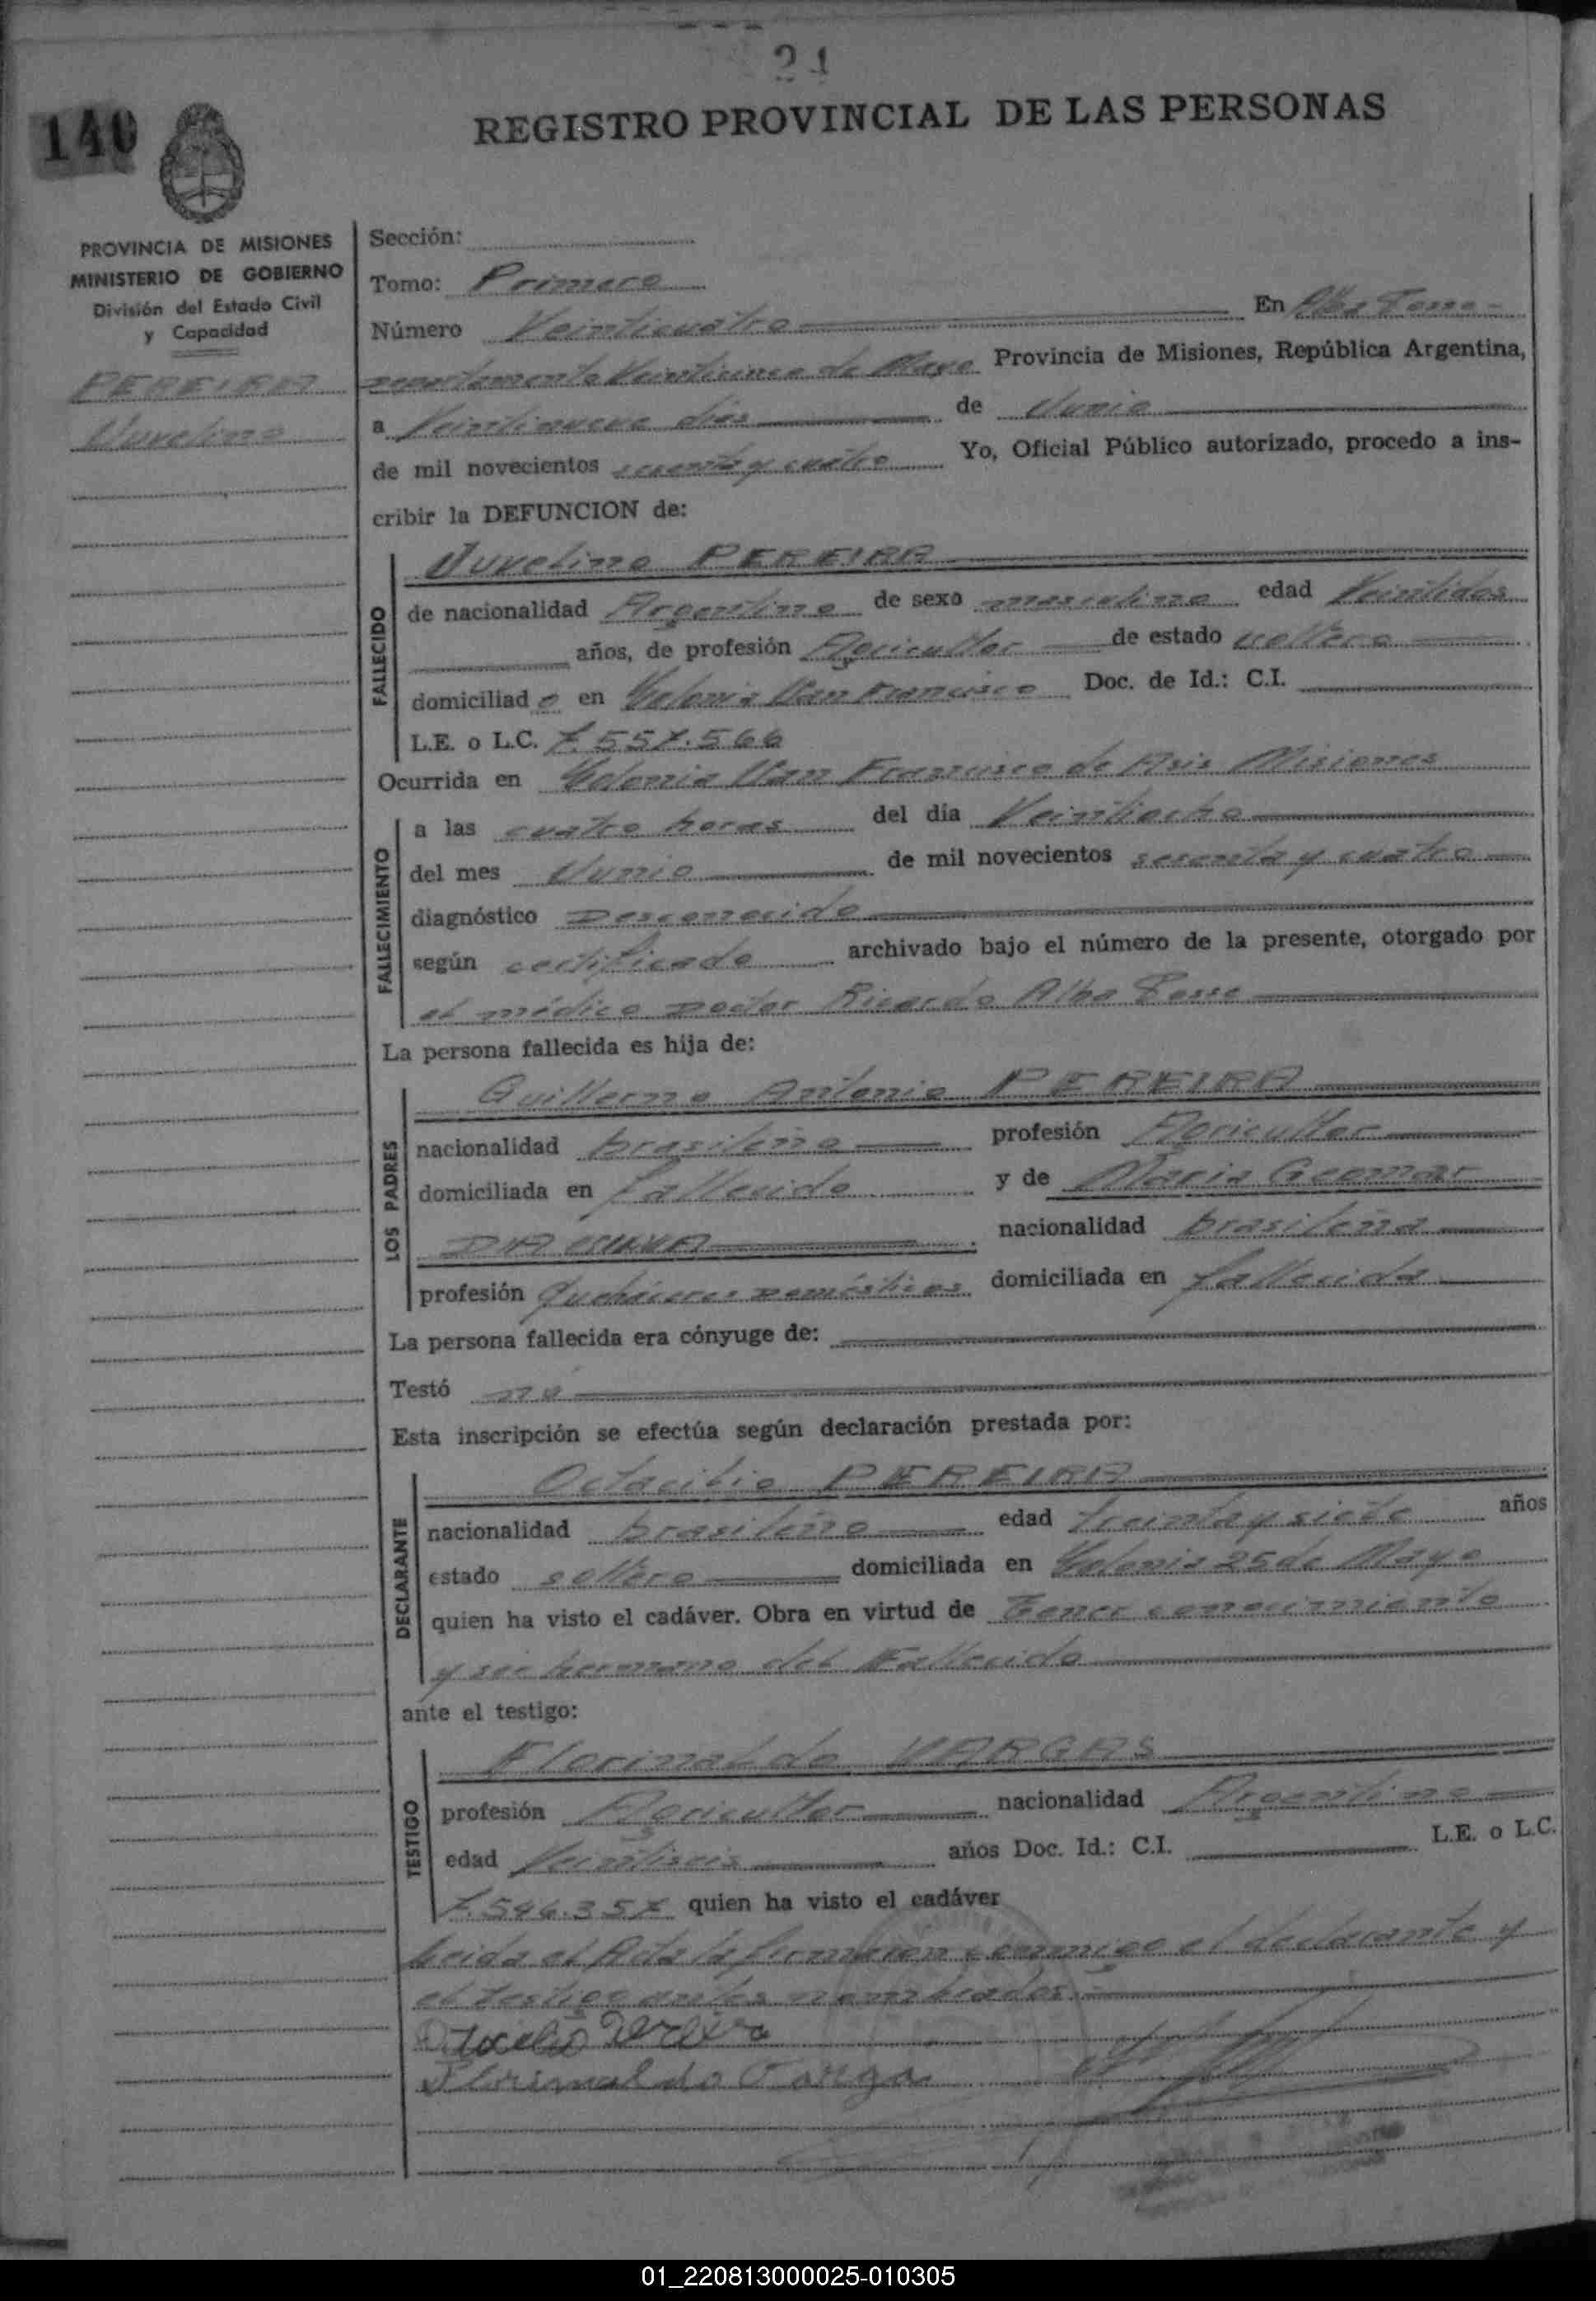 24
140
REGISTRO PROVINCIAL DE LAS PERSONAS
PROVINCIA DE MISIONES
MINISTERIO DE GOBIERNO
División del Estado Civil
y Capacidad
PEREIRA
Juvelino
Sección:
Tomo: Primero
Número Veinticuatro En Alba Posse
departamento Veinticinco de Mayo Provincia de Misiones, República Argentina,
a Veintinueve días de Junio
de mil novecientos sesenta y cuatro Yo, Oficial Público autorizado, procedo a ins-
cribir la DEFUNCION de:
FALLECIDO
Juvelino PEREIRA
de nacionalidad Argentino de sexo masculino edad Veintidos
años, de profesión Agricultor de estado soltero
domiciliad o en Colonia San Francisco Doc. de Id.: C.I.
L.E. o L.C. 7.557.566
Ocurrida en Colonia San Francisco de Asis Misiones
FALLECIMIENTO
a las cuatro horas del día Veintiocho
del mes Junio de mil novecientos sesenta y cuatro
diagnóstico Desconocido
según certificado archivado bajo el número de la presente, otorgado por
el médico Doctor Ricardo Alba Posse
La persona fallecida es hija de:
LOS PADRES
Guillermo Antonio PEREIRA
nacionalidad brasileño profesión Agricultor
domiciliada en fallecido y de Maria
nacionalidad brasileña
profesión Quehaceres Domésticos domiciliada en fallecida
La persona fallecida era cónyuge de:
Testó no
Esta inscripción se efectúa según declaración prestada por:
DECLARANTE
Octacilio PEREIRA
nacionalidad brasileño edad treinta y siete años
estado soltero domiciliada en Colonia 25 de Mayo
quien ha visto el cadáver. Obra en virtud de Tener conocimiento
y ser hermano del Fallecido
ante el testigo:
TESTIGO
Florinaldo VARGAS
profesión Agricultor nacionalidad Argentino
edad Veintiseis años Doc. Id.: C.I. L.E. o L.C.
7.546.357 quien ha visto el cadáver
Leida el Acta la firmaron conmigo el declarante y
el testigo antes nombrados.
Otacilio Pereira
Florinaldo Varga
01_220813000025-010305